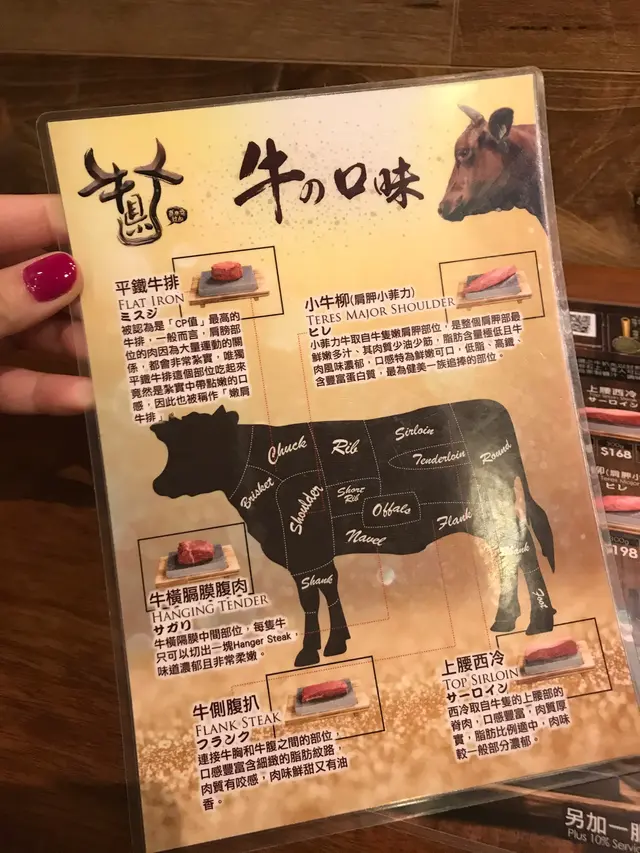 牛の口味
平鐵牛排
FLAT IRON
ミスジ
被認為是「CP值」最高的
牛排，一般而言，肩膀部
位的肉因為大量運動的關
係，都會非常紮實，唯獨
平鐵牛排這個部位吃起來
竟然是紮實中帶點嫩的口
感，因此也被稱作「嫩肩
牛排」。
小牛柳(肩胛小菲力)
TERES MAJOR SHOULDER
ヒレ
小菲力牛取自牛隻嫩肩胛部位，是整個肩胛部最
鮮嫩多汁、其肉質少油少筋，脂肪含量極低且牛
肉風味濃郁，口感特為鮮嫩可口，低脂、高鐵、
含豐富蛋白質，最為健美一族追捧的部位。
Chuck
Rib
Sirloin
Tenderloin
Round
Brisket
Shoulder
Short
Rib
Offals
Flank
Navel
Shank
Shank
牛橫膈膜腹肉
HANGING TENDER
サガリ
牛橫隔膜中間部位，每隻牛
只可以切出一塊Hanger Steak，
味道濃郁且非常柔嫩。
牛側腹扒
FLANK STEAK
フランク
連接牛胸和牛腹之間的部位，
口感豐富含細緻的脂肪紋路，
肉質有咬感，肉味鮮甜又有油
香。
上腰西冷
TOP SIRLOIN
サーロイン
西冷取自牛隻的上腰部的
脊肉，口感豐富，肉質厚
實，脂肪比例適中，肉味
較一般部分濃郁。
上腰西冷
サーロイン
$168
ヒレ
198
另加一服
Plus 10% Servi